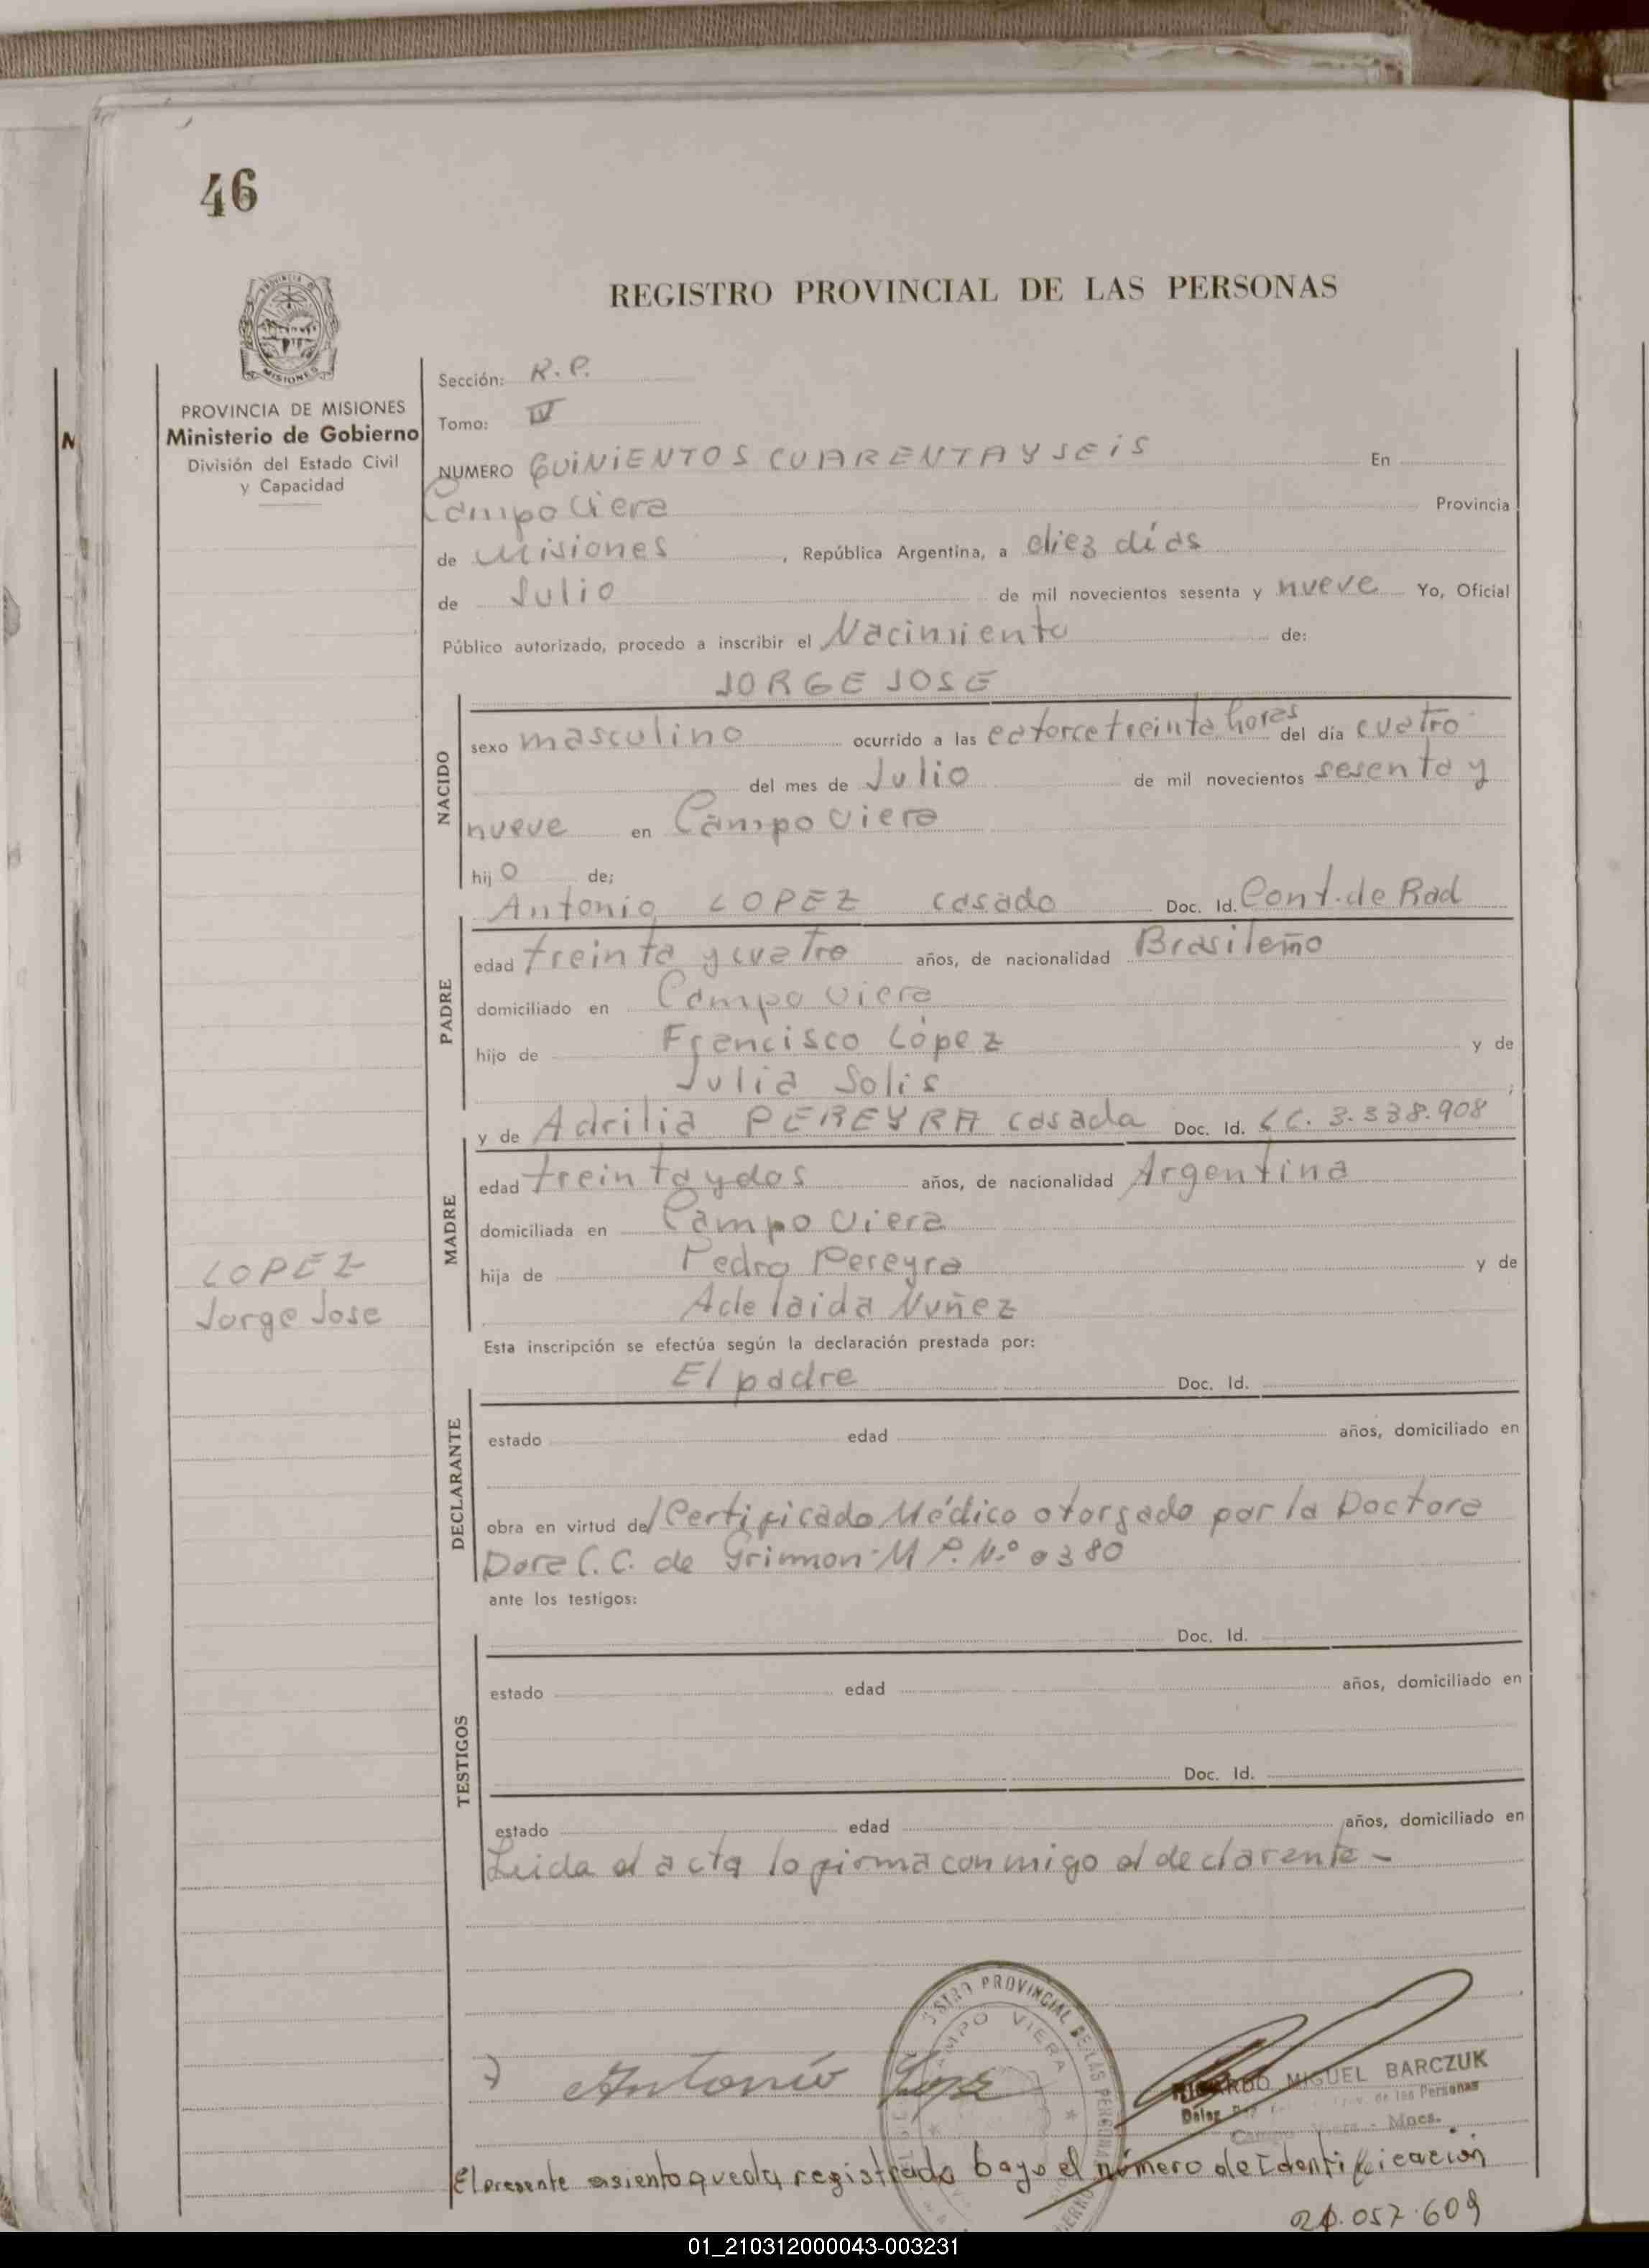 46
REGISTRO PROVINCIAL DE LAS PERSONAS
PROVINCIA DE MISIONES
Ministerio de Gobierno
División del Estado Civil
y Capacidad
Sección: R.P.
Tomo: IV
NUMERO QUINIENTOS CUARENTA Y SEIS En
Campo Viera Provincia
de Misiones, República Argentina, a diez días
de Julio de mil novecientos sesenta y nueve Yo, Oficial
Público autorizado, procedo a inscribir el Nacimiento de:
JORGE JOSE
NACIDO
sexo masculino ocurrido a las catorce treinta horas del día cuatro
del mes de Julio de mil novecientos sesenta y
nueve en Campo Viera
hijo de;
Antonio LOPEZ casado Doc. Id. Cont. de Rad
PADRE
edad treinta y cuatro años, de nacionalidad Brasileño
domiciliado en Campo Viera
hijo de Francisco López y de
Julia Solis ;
y de Adrilia PEREYRA casada Doc. Id. LC. 3.338.908
MADRE
edad treinta y dos años, de nacionalidad Argentina
domiciliada en Campo Viera
hija de Pedro Pereyra y de
Adelaida Nuñez
LOPEZ
Jorge Jose
Esta inscripción se efectúa según la declaración prestada por:
El padre Doc. Id.
DECLARANTE
estado edad años, domiciliado en
obra en virtud de/ Certificado Médico otorgado por la Doctora
Dora C. C. de Grimon M P. N.° 0380
ante los testigos:
Doc. Id.
TESTIGOS
estado edad años, domiciliado en
Doc. Id.
estado edad años, domiciliado en
Leida el acta lo firma conmigo el declarante -
Antonio Lopez
CAMPO VIERA
RICARDO MIGUEL BARCZUK
de las Personas
Mnes.
El presente asiento queda registrado bajo el número de Identificación
057.609
01_210312000043-003231